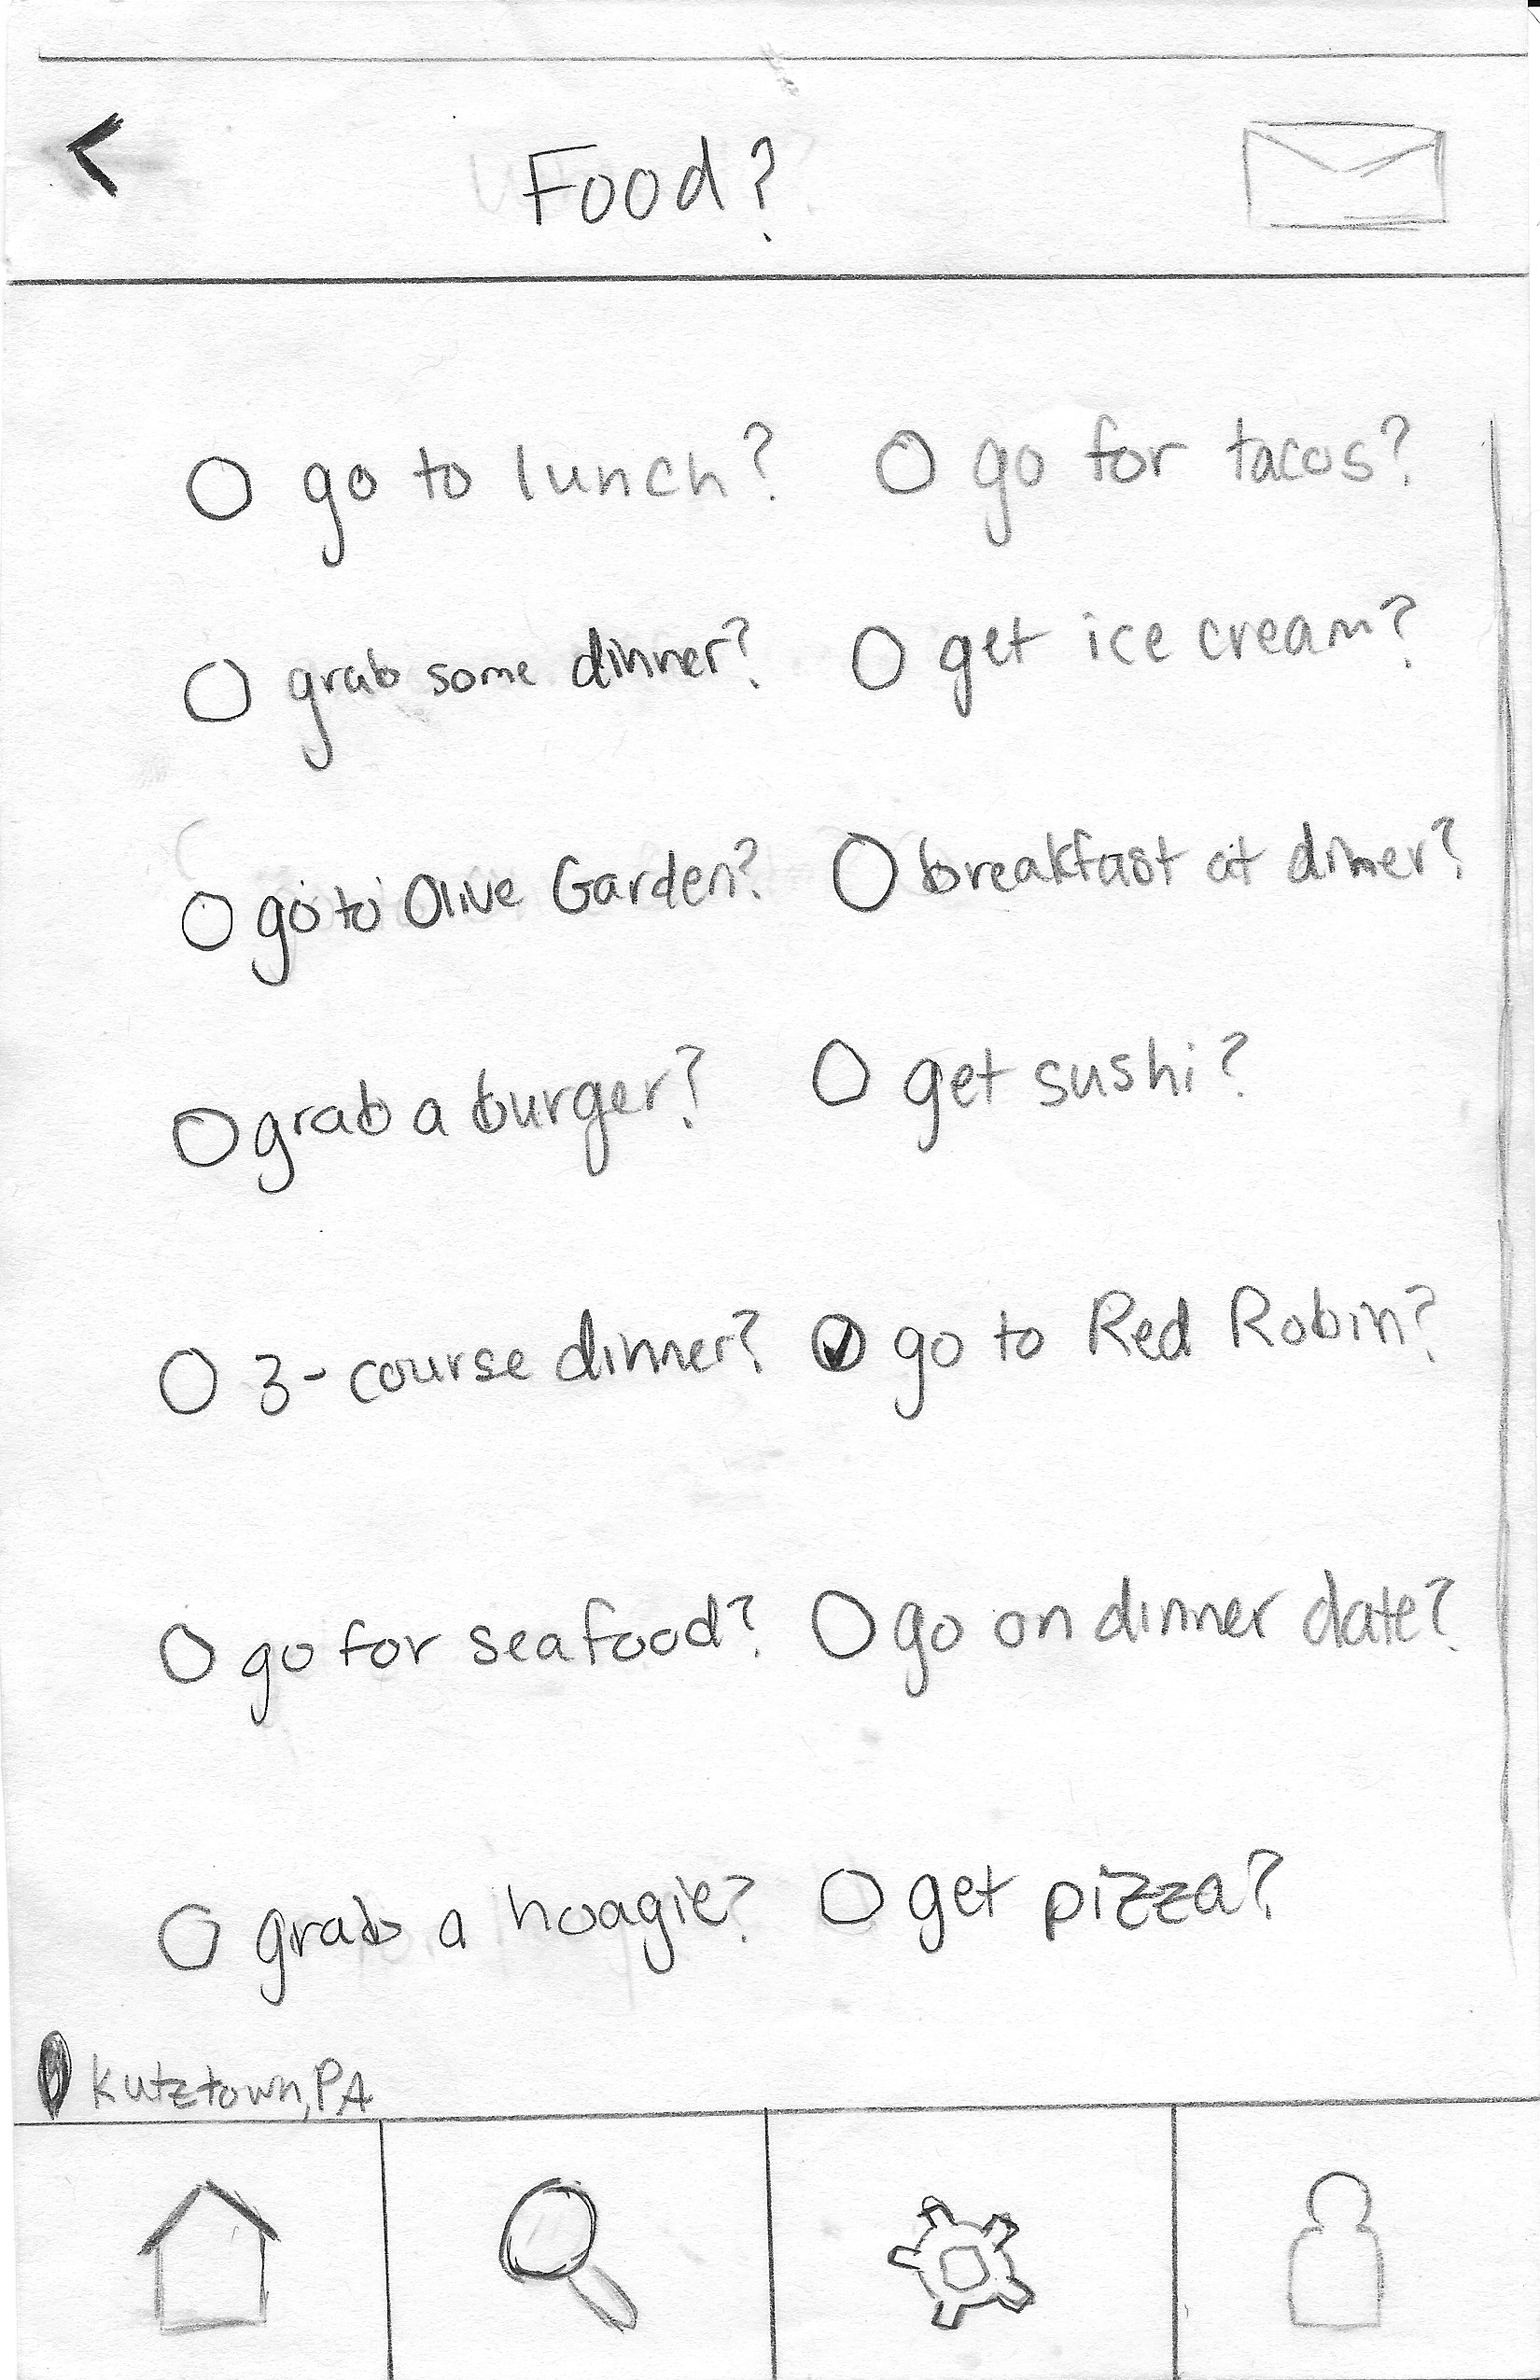 Food?
go to lunch? go for tacos?
grab some dinner? get ice cream?
go to Olive Garden? breakfast at diner?
grab a burger? get sushi?
3-course dinner? go to Red Robin?
go for seafood? go on dinner date?
grab a hoagie? get pizza?
Kutztown, PA